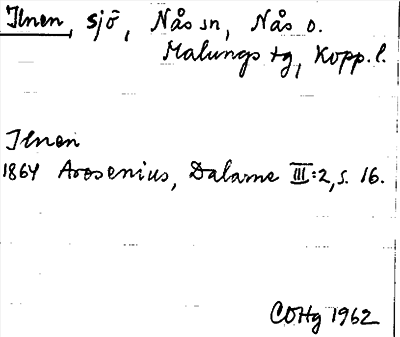 Ilnen, sjö, Nås sn, Nås o.
Malungs tg, Kopp. l.
Ilnen
1864 Arosenius, Dalarne III:2, s. 16.
COHg 1962